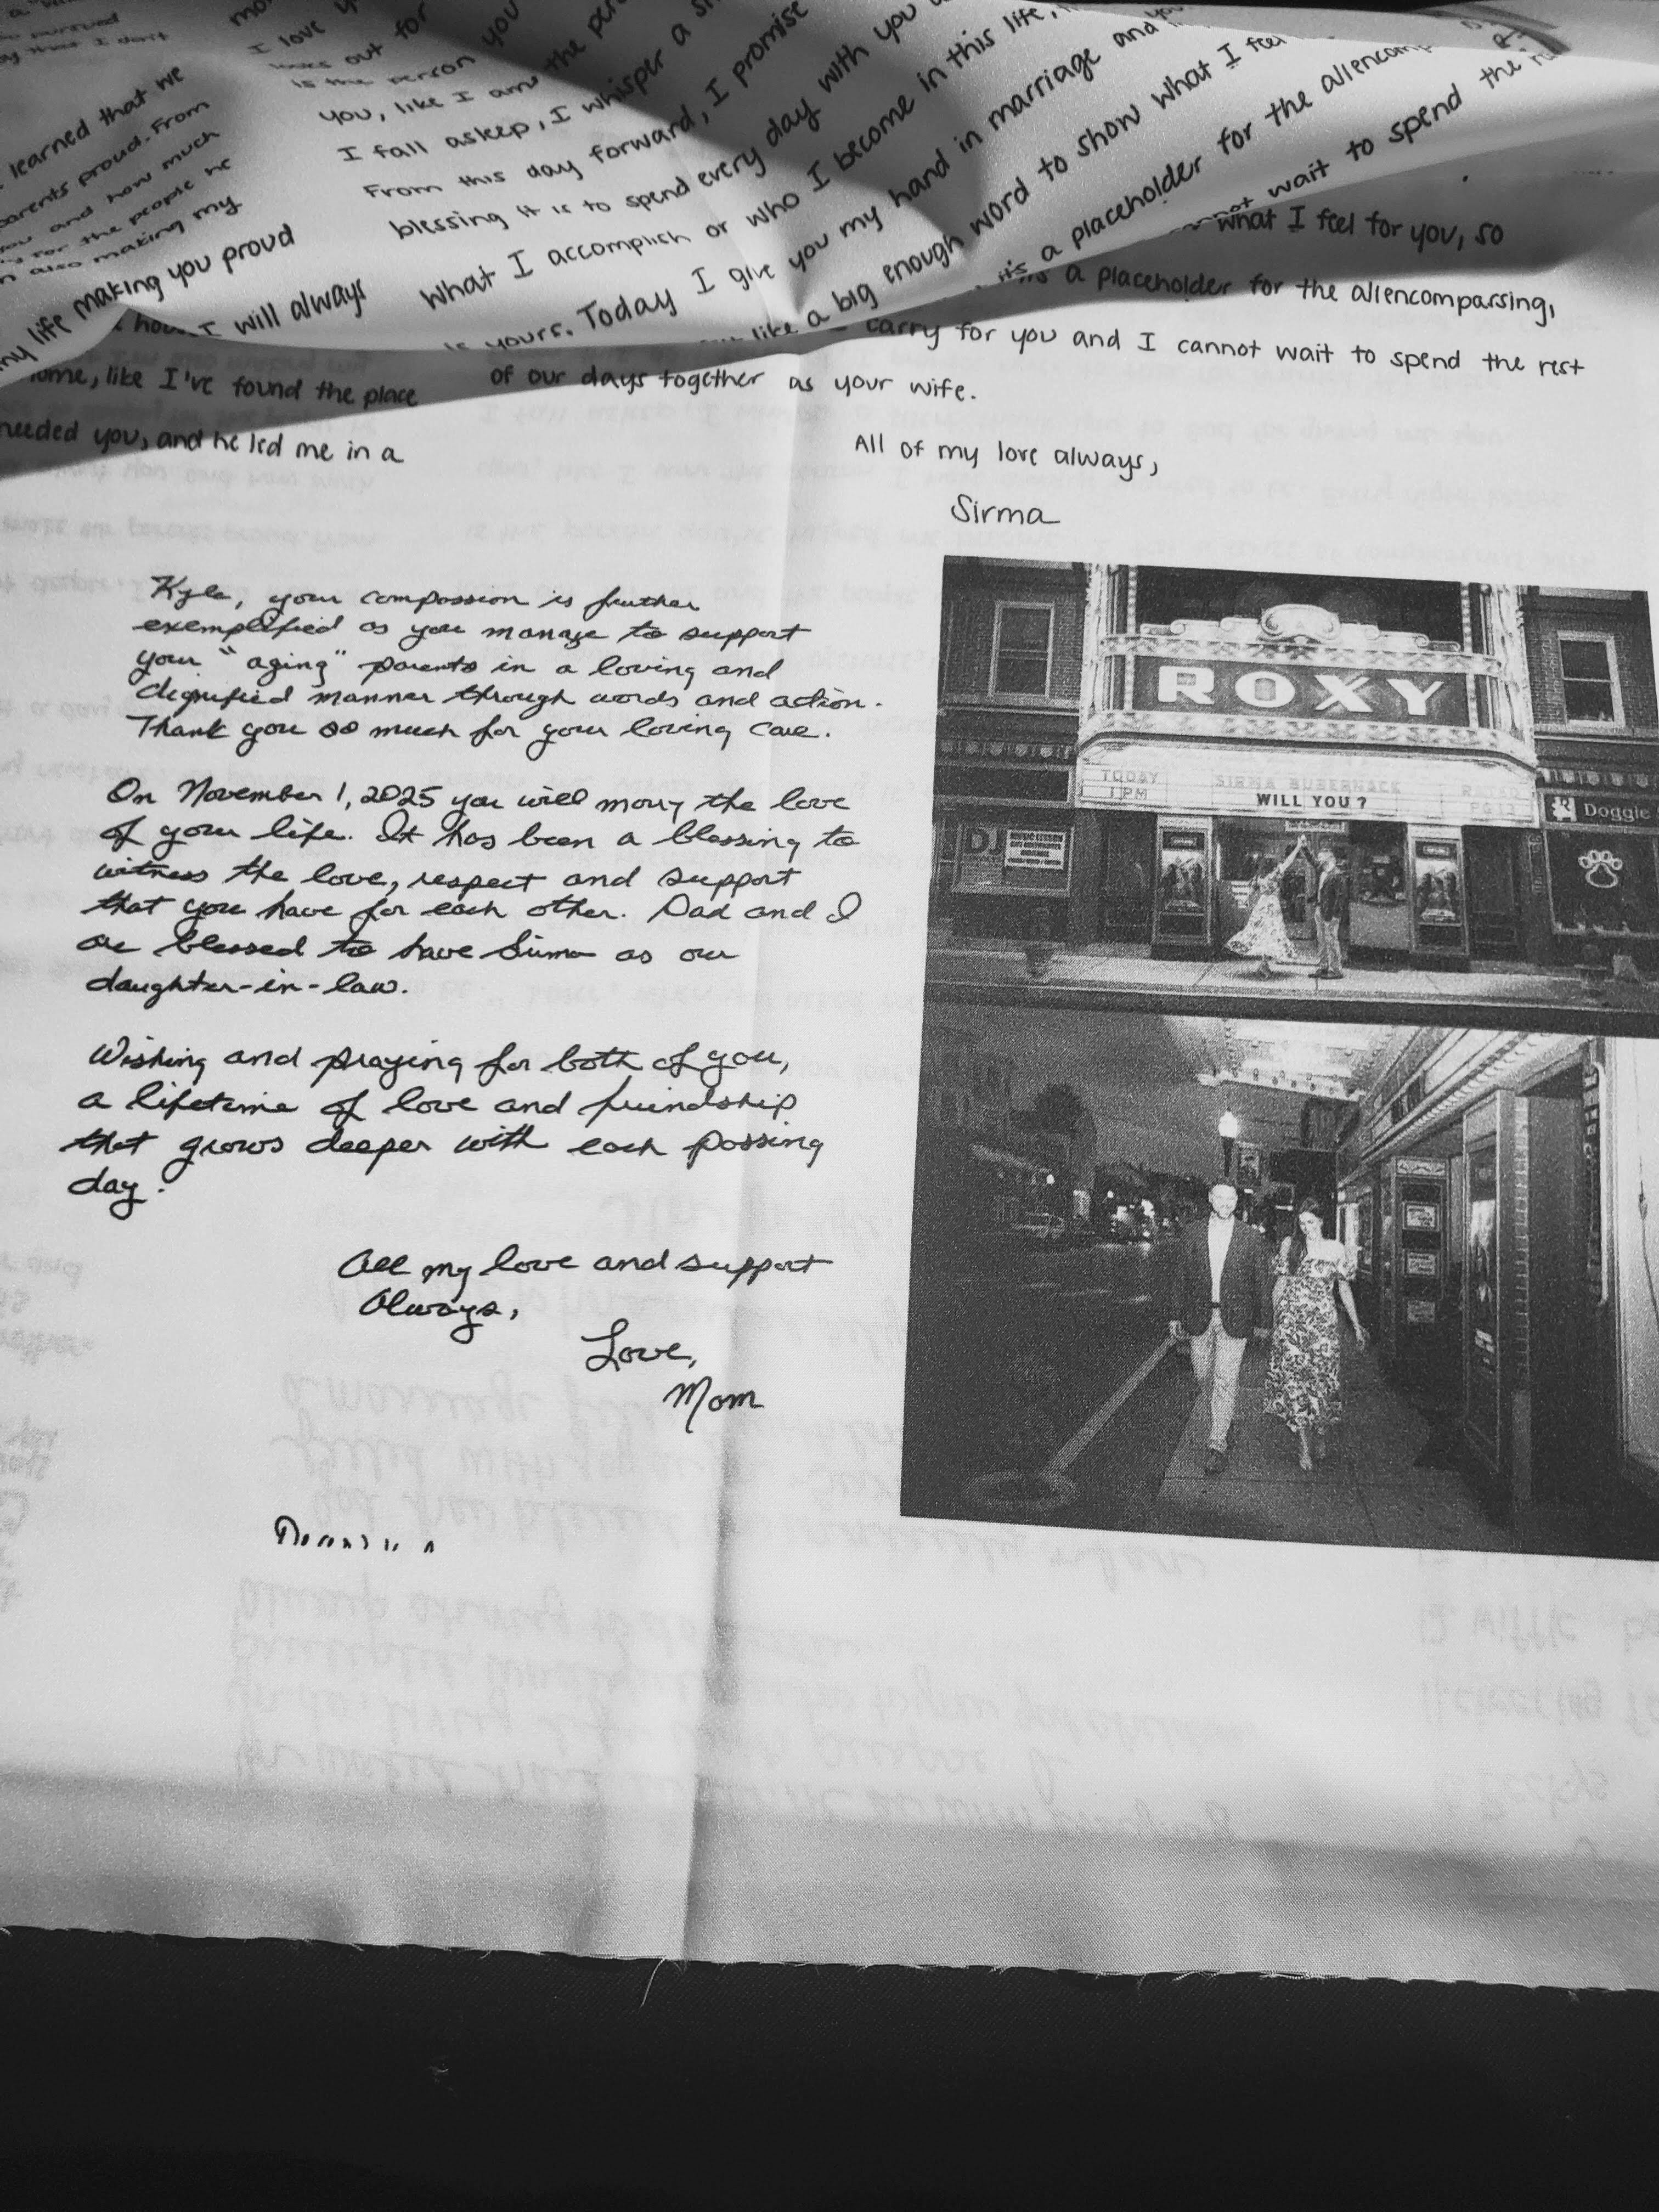 learned that we
parents proud. From
you and how much
for the people he
also making my
my life making you proud
I will always
home, like I've found the place
needed you, and he led me in a
I love
looks out for
is the person you
you, like I am the
I fall asleep, I whisper a
From this day forward, I promise
blessing it is to spend every day with you
What I accomplish or who I become in this life,
is yours. Today I give you my hand in marriage and
like a big enough word to show what I feel
it's a placeholder for the allencom
wait to spend the
what I feel for you, so
a placeholder for the allencompassing,
carry for you and I cannot wait to spend the rest
of our days together as your wife.
All of my love always,
Sirma
Kyle, your compassion is further
exemplified as you manage to support
your "aging" parents in a loving and
dignified manner through words and action.
Thank you so much for your loving care.
On November 1, 2025 you will marry the love
of your life. It has been a blessing to
witness the love, respect and support
that you have for each other. Dad and I
are blessed to have Sirma as our
daughter-in-law.
Wishing and praying for both of you,
a lifetime of love and friendship
that grows deeper with each passing
day.
All my love and support
Always,
Love,
Mom
ROXY
TODAY
1 PM
SIRMA
WILL YOU?
DJ
Doggie